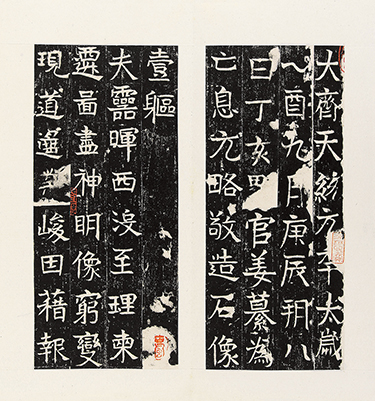 大齊天統元年太歲
乙酉九月庚辰朔八
日丁亥官姜纂為
亡息元略敬造石像
壹軀
夫靈暉西沒至理東
遷啚盡神明像窮變
現道遙峻因藉報